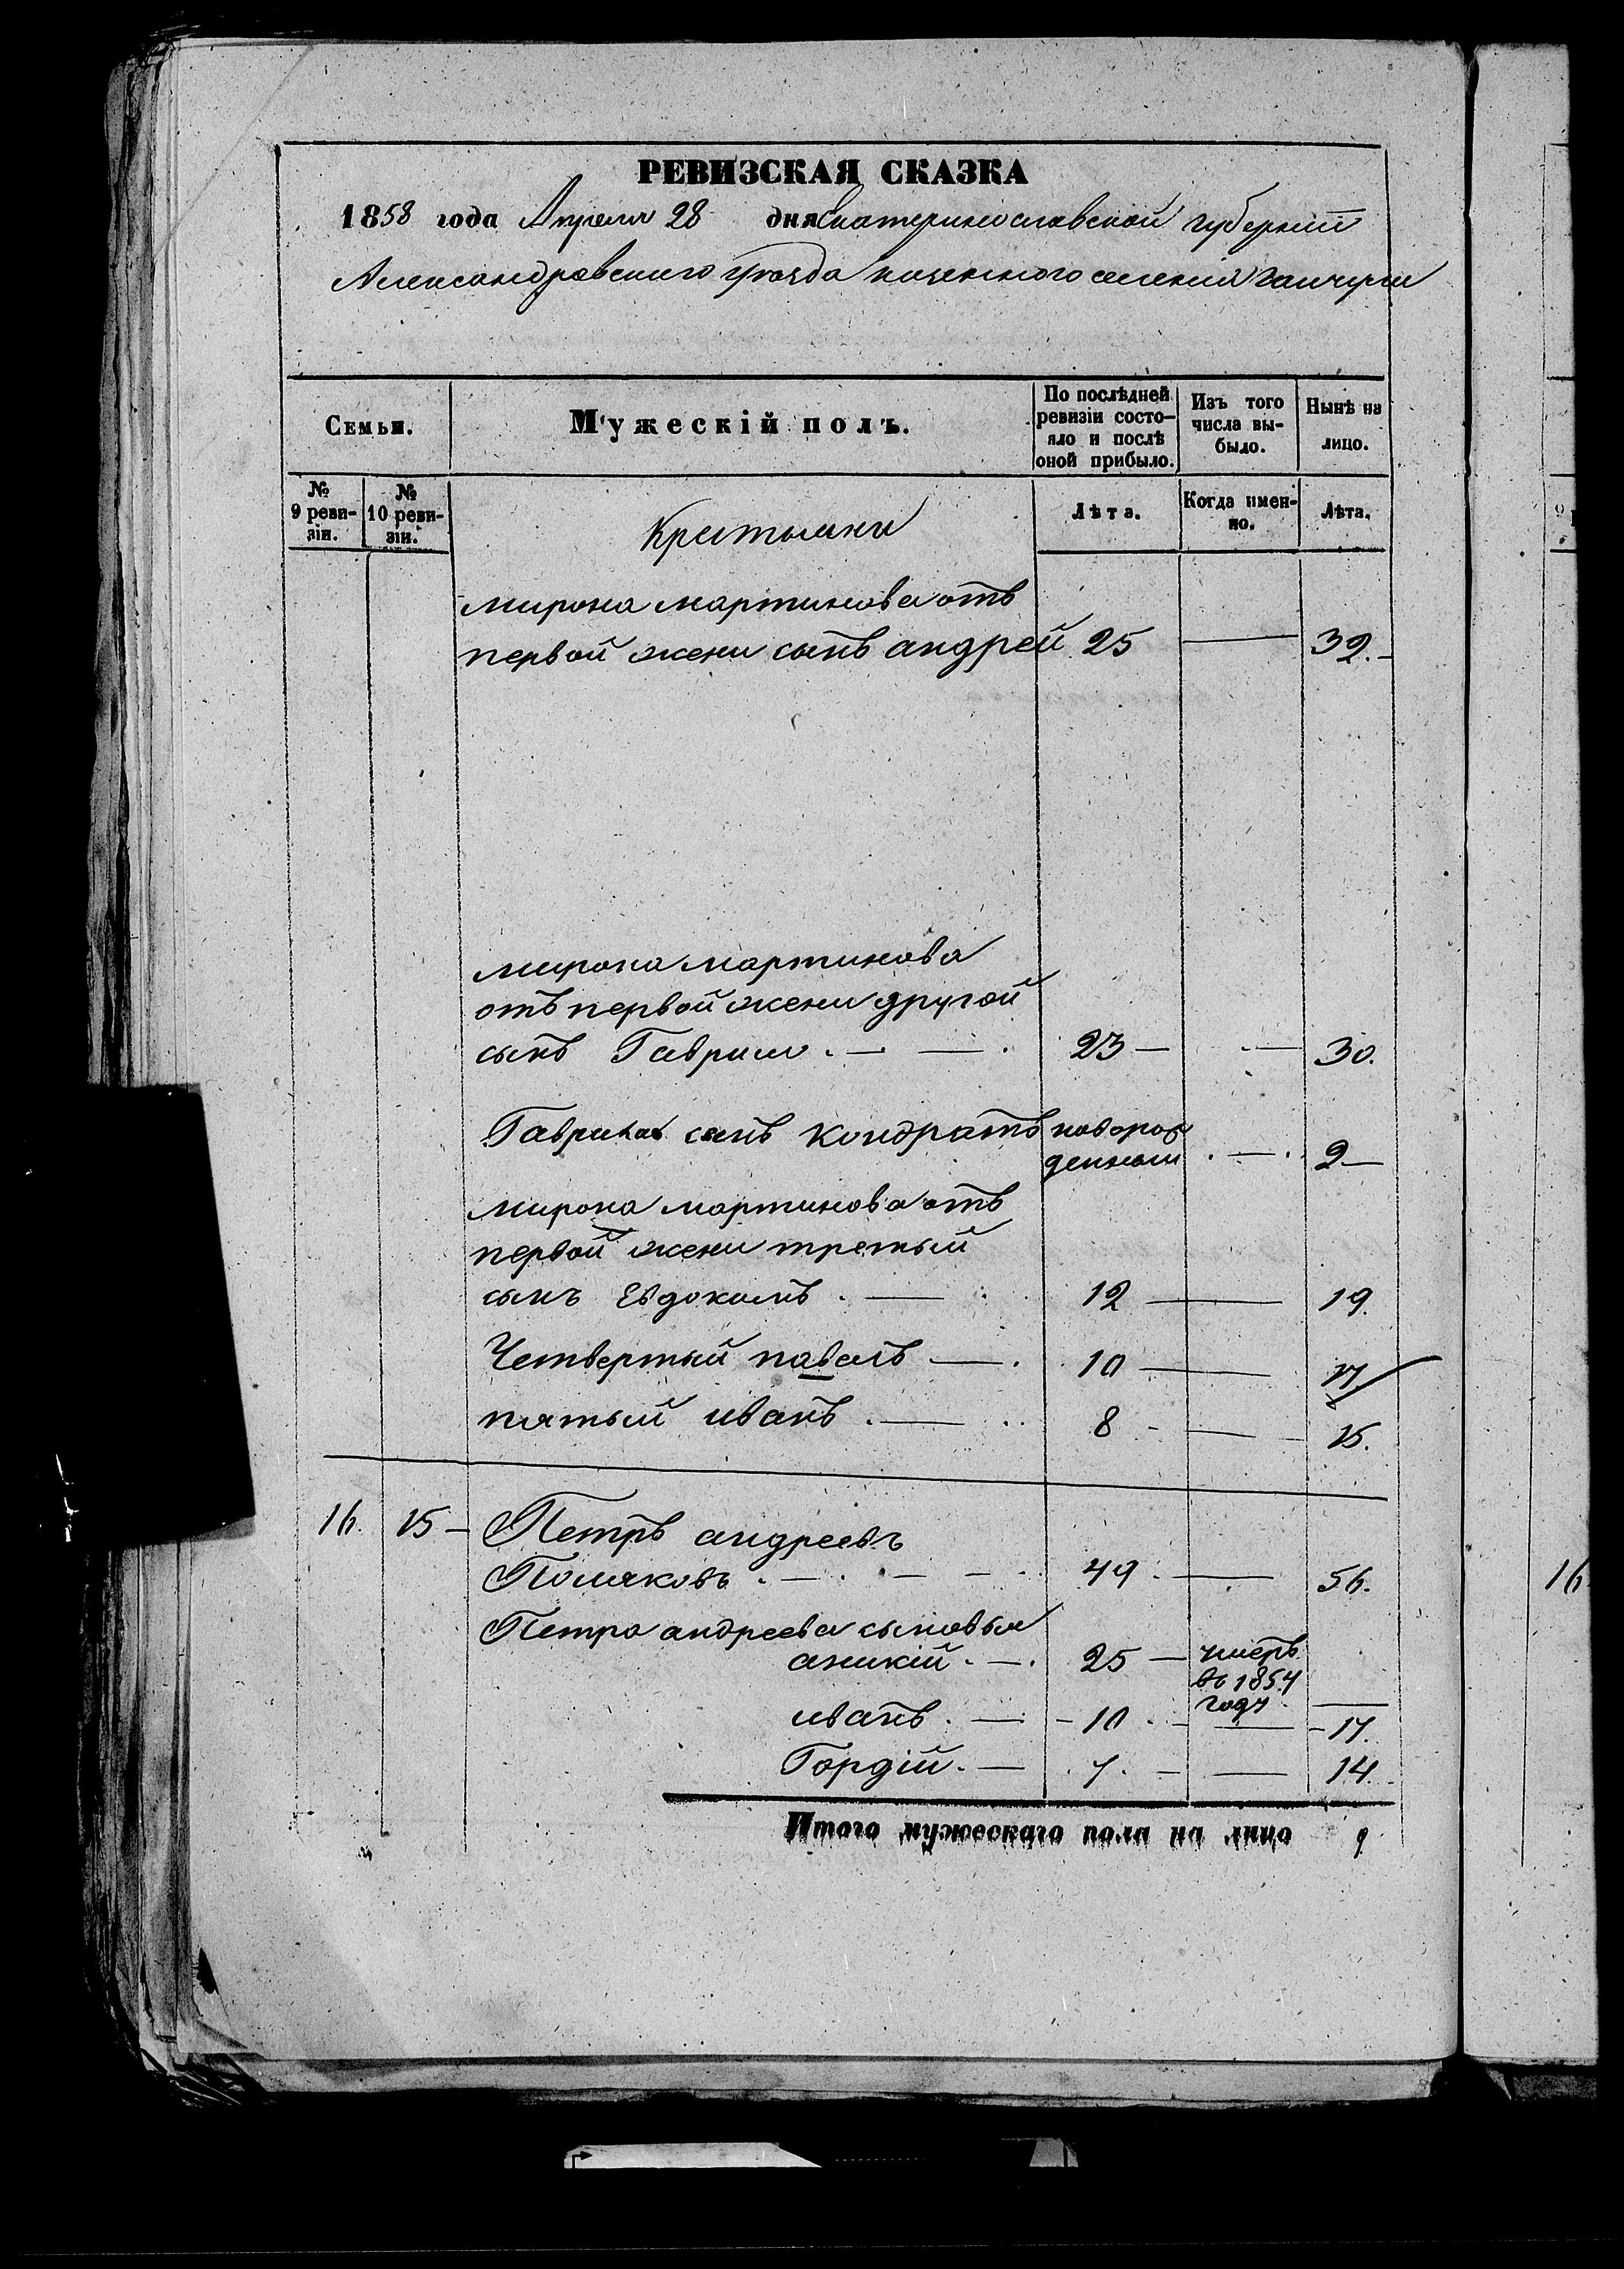 РЕВИЗСКАЯ СКАЗКА
1858 года Апреля 28 дня Екатеринославской губерніи
Александровского уезда казенного селенія Гайчула
Семьи. Мужескій полъ. По послѣдней ревизіи состояло и послѣ оной прибыло. Изъ того числа выбыло. Нынѣ на лицо.
№ 9 ревизіи. № 10 ревизіи. Крестьяни Лѣта. Когда именно. Лѣта.
мирона мартинова отъ
первой жени сынъ андрей 25 — 32.-
мирона мартинова
отъ первой жени другой
сынъ Гаврило . — — . 23 — . — 30.
Гаврила сынъ кондратъ новорож
денном . — . 2 —
мирона мартинова отъ
первой жени третьий
сынъ Евдокимъ . — . 12 — 19.
Четвертый павелъ — . 10 — 17.
пятый иванъ . — .. 8 - — - 15.
16. 15 - Петръ андреевъ
Поляковъ . — . — — . 49 . — 56.
Петра андреева сыновья
аникій . — . 25 — умеръ
въ 1854
году . —
иванъ . — - 10 . - — - 17.
Гордій . — . 7 . - — 14.
Итого мужескаго пола на лицо 9
16